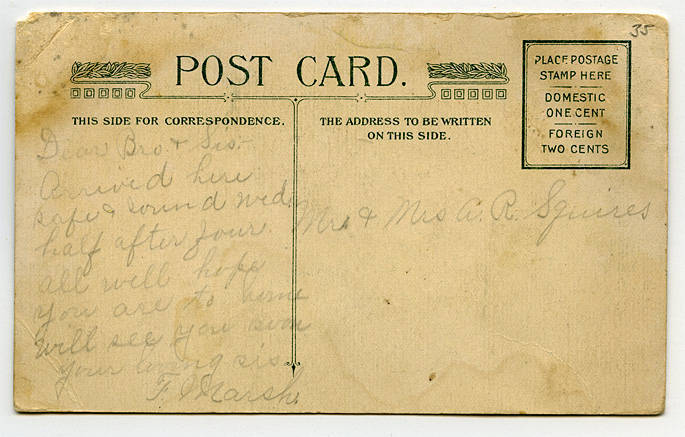 35
POST CARD.
PLACE POSTAGE
STAMP HERE
DOMESTIC
ONE CENT
FOREIGN
TWO CENTS
THIS SIDE FOR CORRESPONDENCE.
THE ADDRESS TO BE WRITTEN
ON THIS SIDE.
Dear Bro & Sis-
Arrived here
safe & sound Wed.
half after four.
all well hope
you are to home
will see you soon
your loving sis
F. Marsh.
Mr. & Mrs A. R. Squires